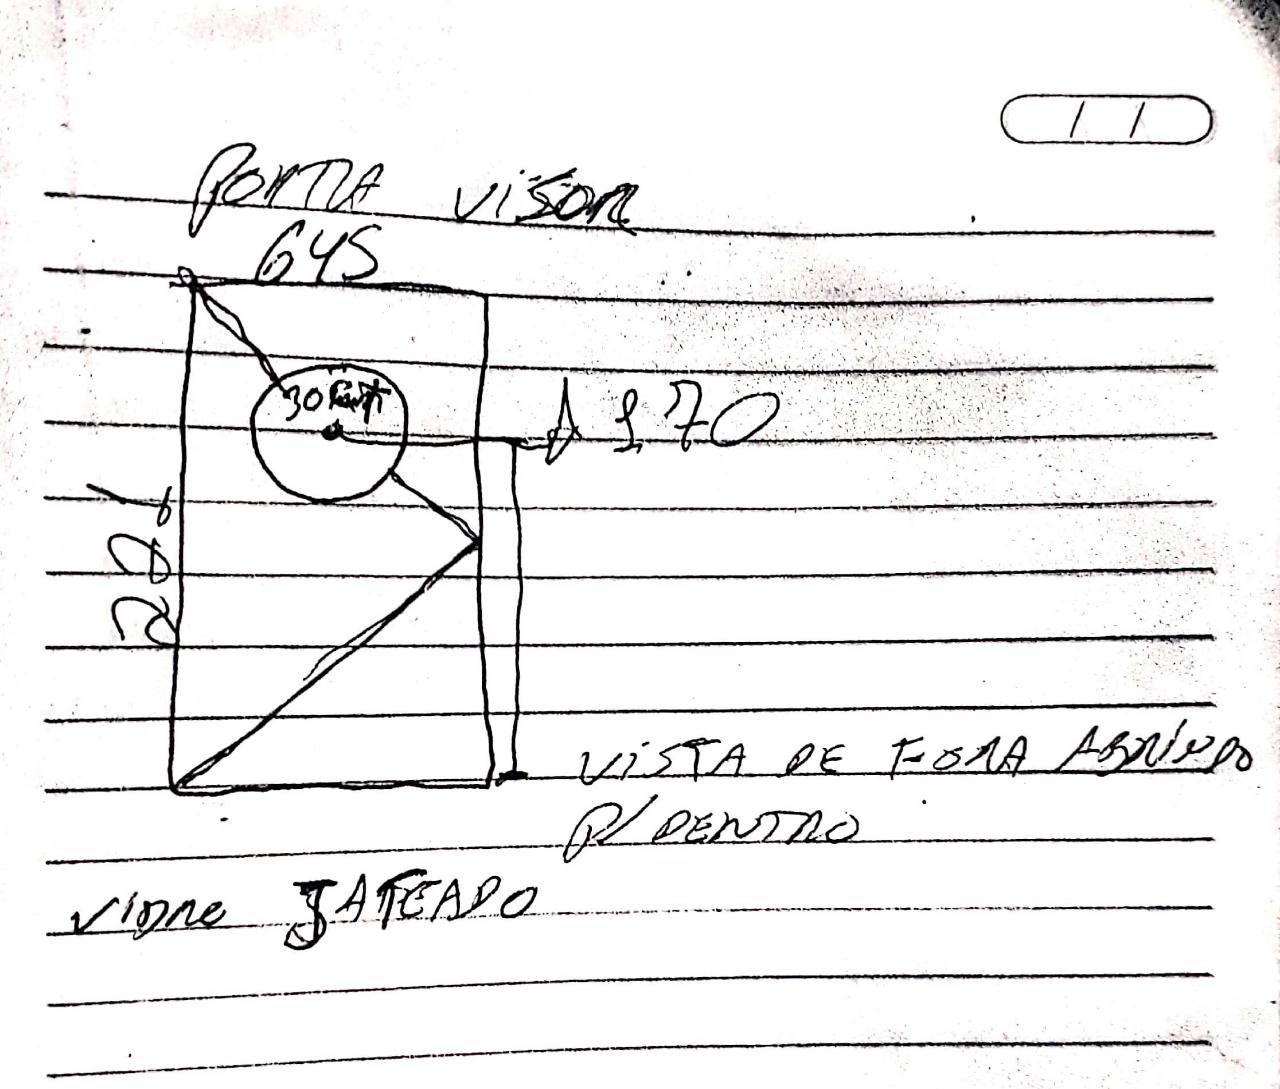 PORTA VISOR
645
30
A 170
VISTA DE FORA ABRINDO
P/ DENTRO
VIDRO JATEADO